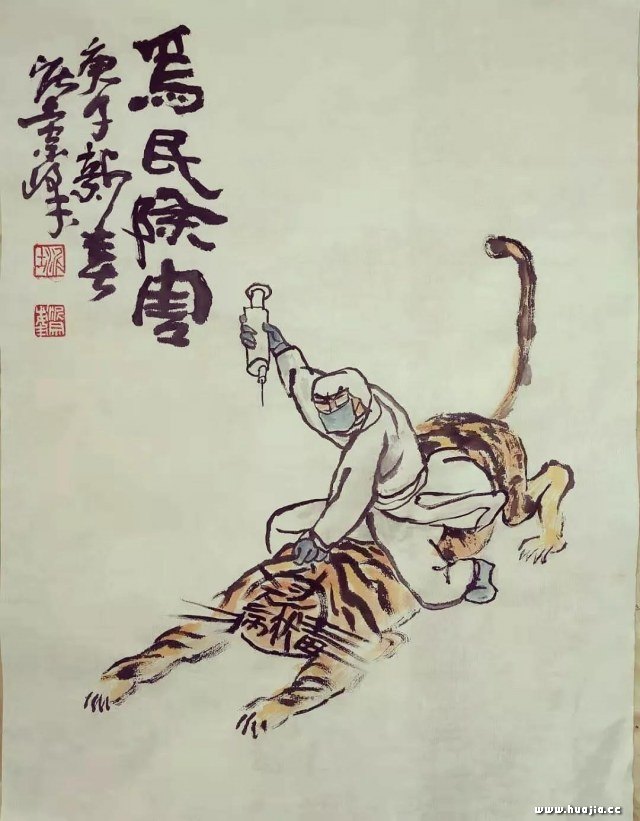 為民除害
庚子新春
景峰
病毒
www.huajia.cc